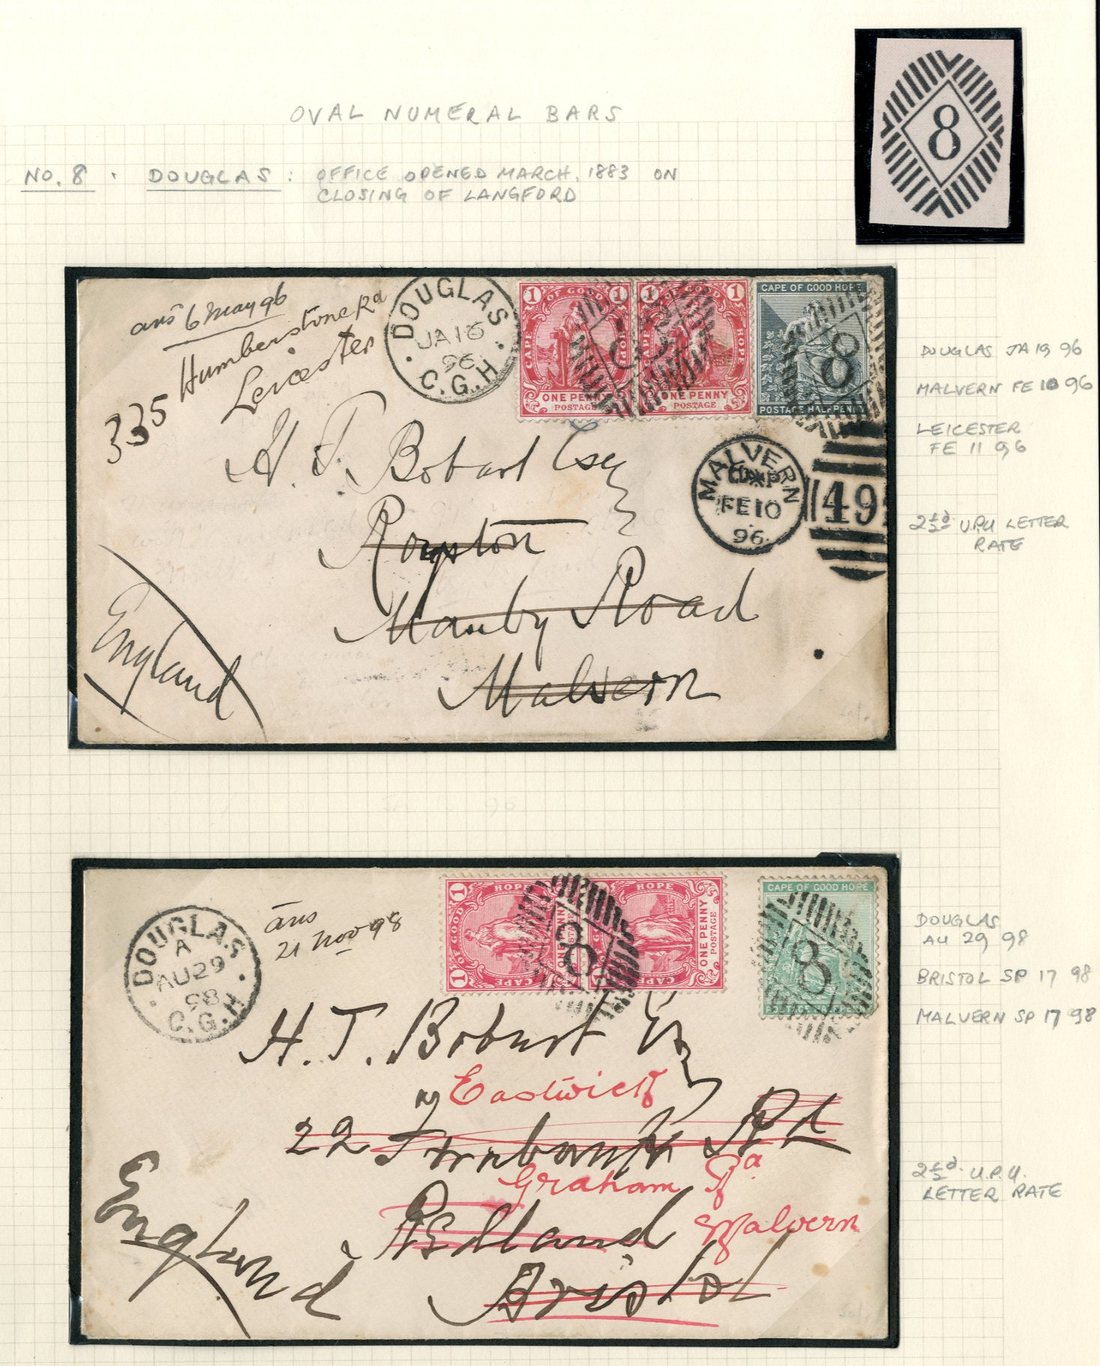 OVAL NUMERAL BARS
8
No. 8 . DOUGLAS : OFFICE OPENED MARCH, 1883 ON
CLOSING OF LANGFORD
ans 6 May 96
Humberstone Rd
Leicester
335
DOUGLAS
JA 16
96
C.G.H
1 OF GOOD 1
CAPE HOPE
ONE PENNY
POSTAGE
1 OF GOOD 1
CAPE HOPE
ONE PENNY
POSTAGE
CAPE OF GOOD HOPE
8
POSTAGE HALF PENNY
H. T. Bobart Esq
Royston
Manby Road
Malvern
England
MALVERN
FE 10
96
49
DOUGLAS JA 19 96
MALVERN FE 10 96
LEICESTER
FE 11 96
2½d U.P.U LETTER
RATE
DOUGLAS
A
AU 29
98
C.G.H
ans
21 Nov 98
1 HOPE
GOOD
OF
1 CAPE
8
HOPE
ONE PENNY
POSTAGE
CAPE
CAPE OF GOOD HOPE
8
H. T. Bobart Esq
Eastwick
22 Rd
Graham Rd
Malvern
Bristol
England
DOUGLAS
AU 29 98
BRISTOL SP 17 98
MALVERN SP 17 98
2½d U.P.U.
LETTER RATE